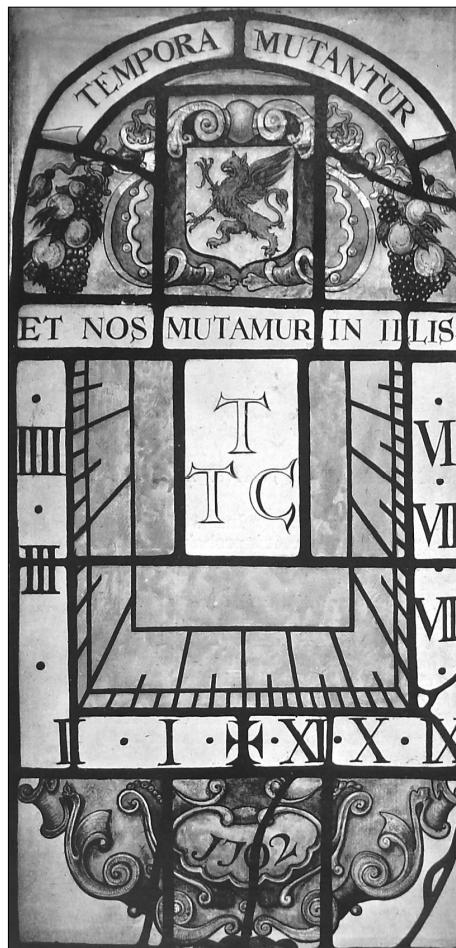 TEMPORA MUTANTUR
ET NOS MUTAMUR IN ILLIS
T
T C
IIII
III
VI
VII
VII
II · I · ✠ · XI · X · IX
1702